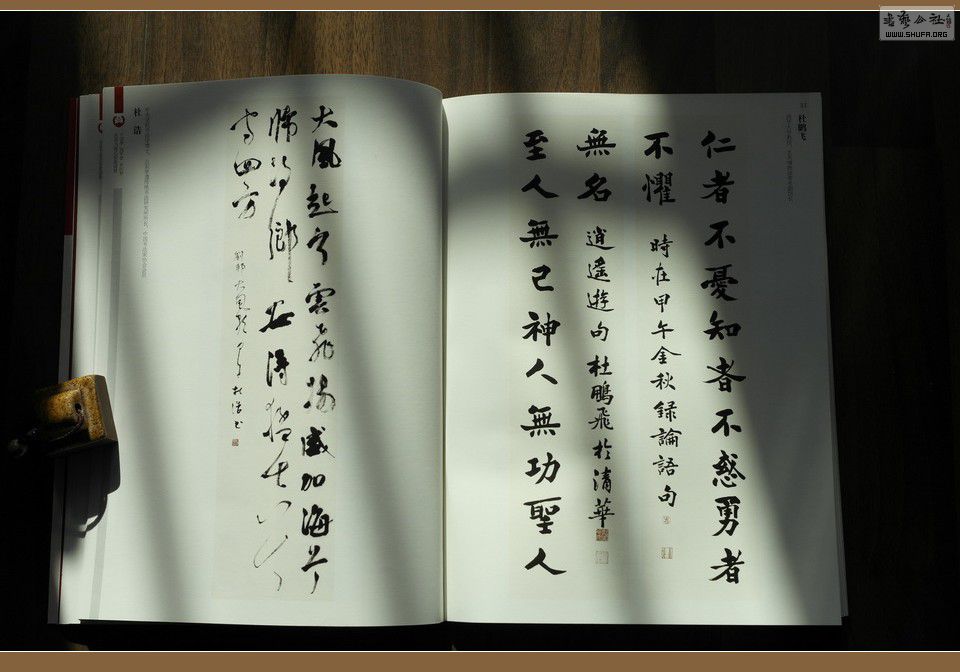 書藝公社
WWW.SHUFA.ORG
杜鵬飞
仁者不憂知者不惑勇者
不懼
時在甲午金秋録論語句
無名
逍遥遊句杜鵬飛於清華
至人無己神人無功聖人
杜浩
大風起兮雲飛揚威加海兮
歸故鄉安得猛士兮
守四方
劉邦大風歌
杜浩书